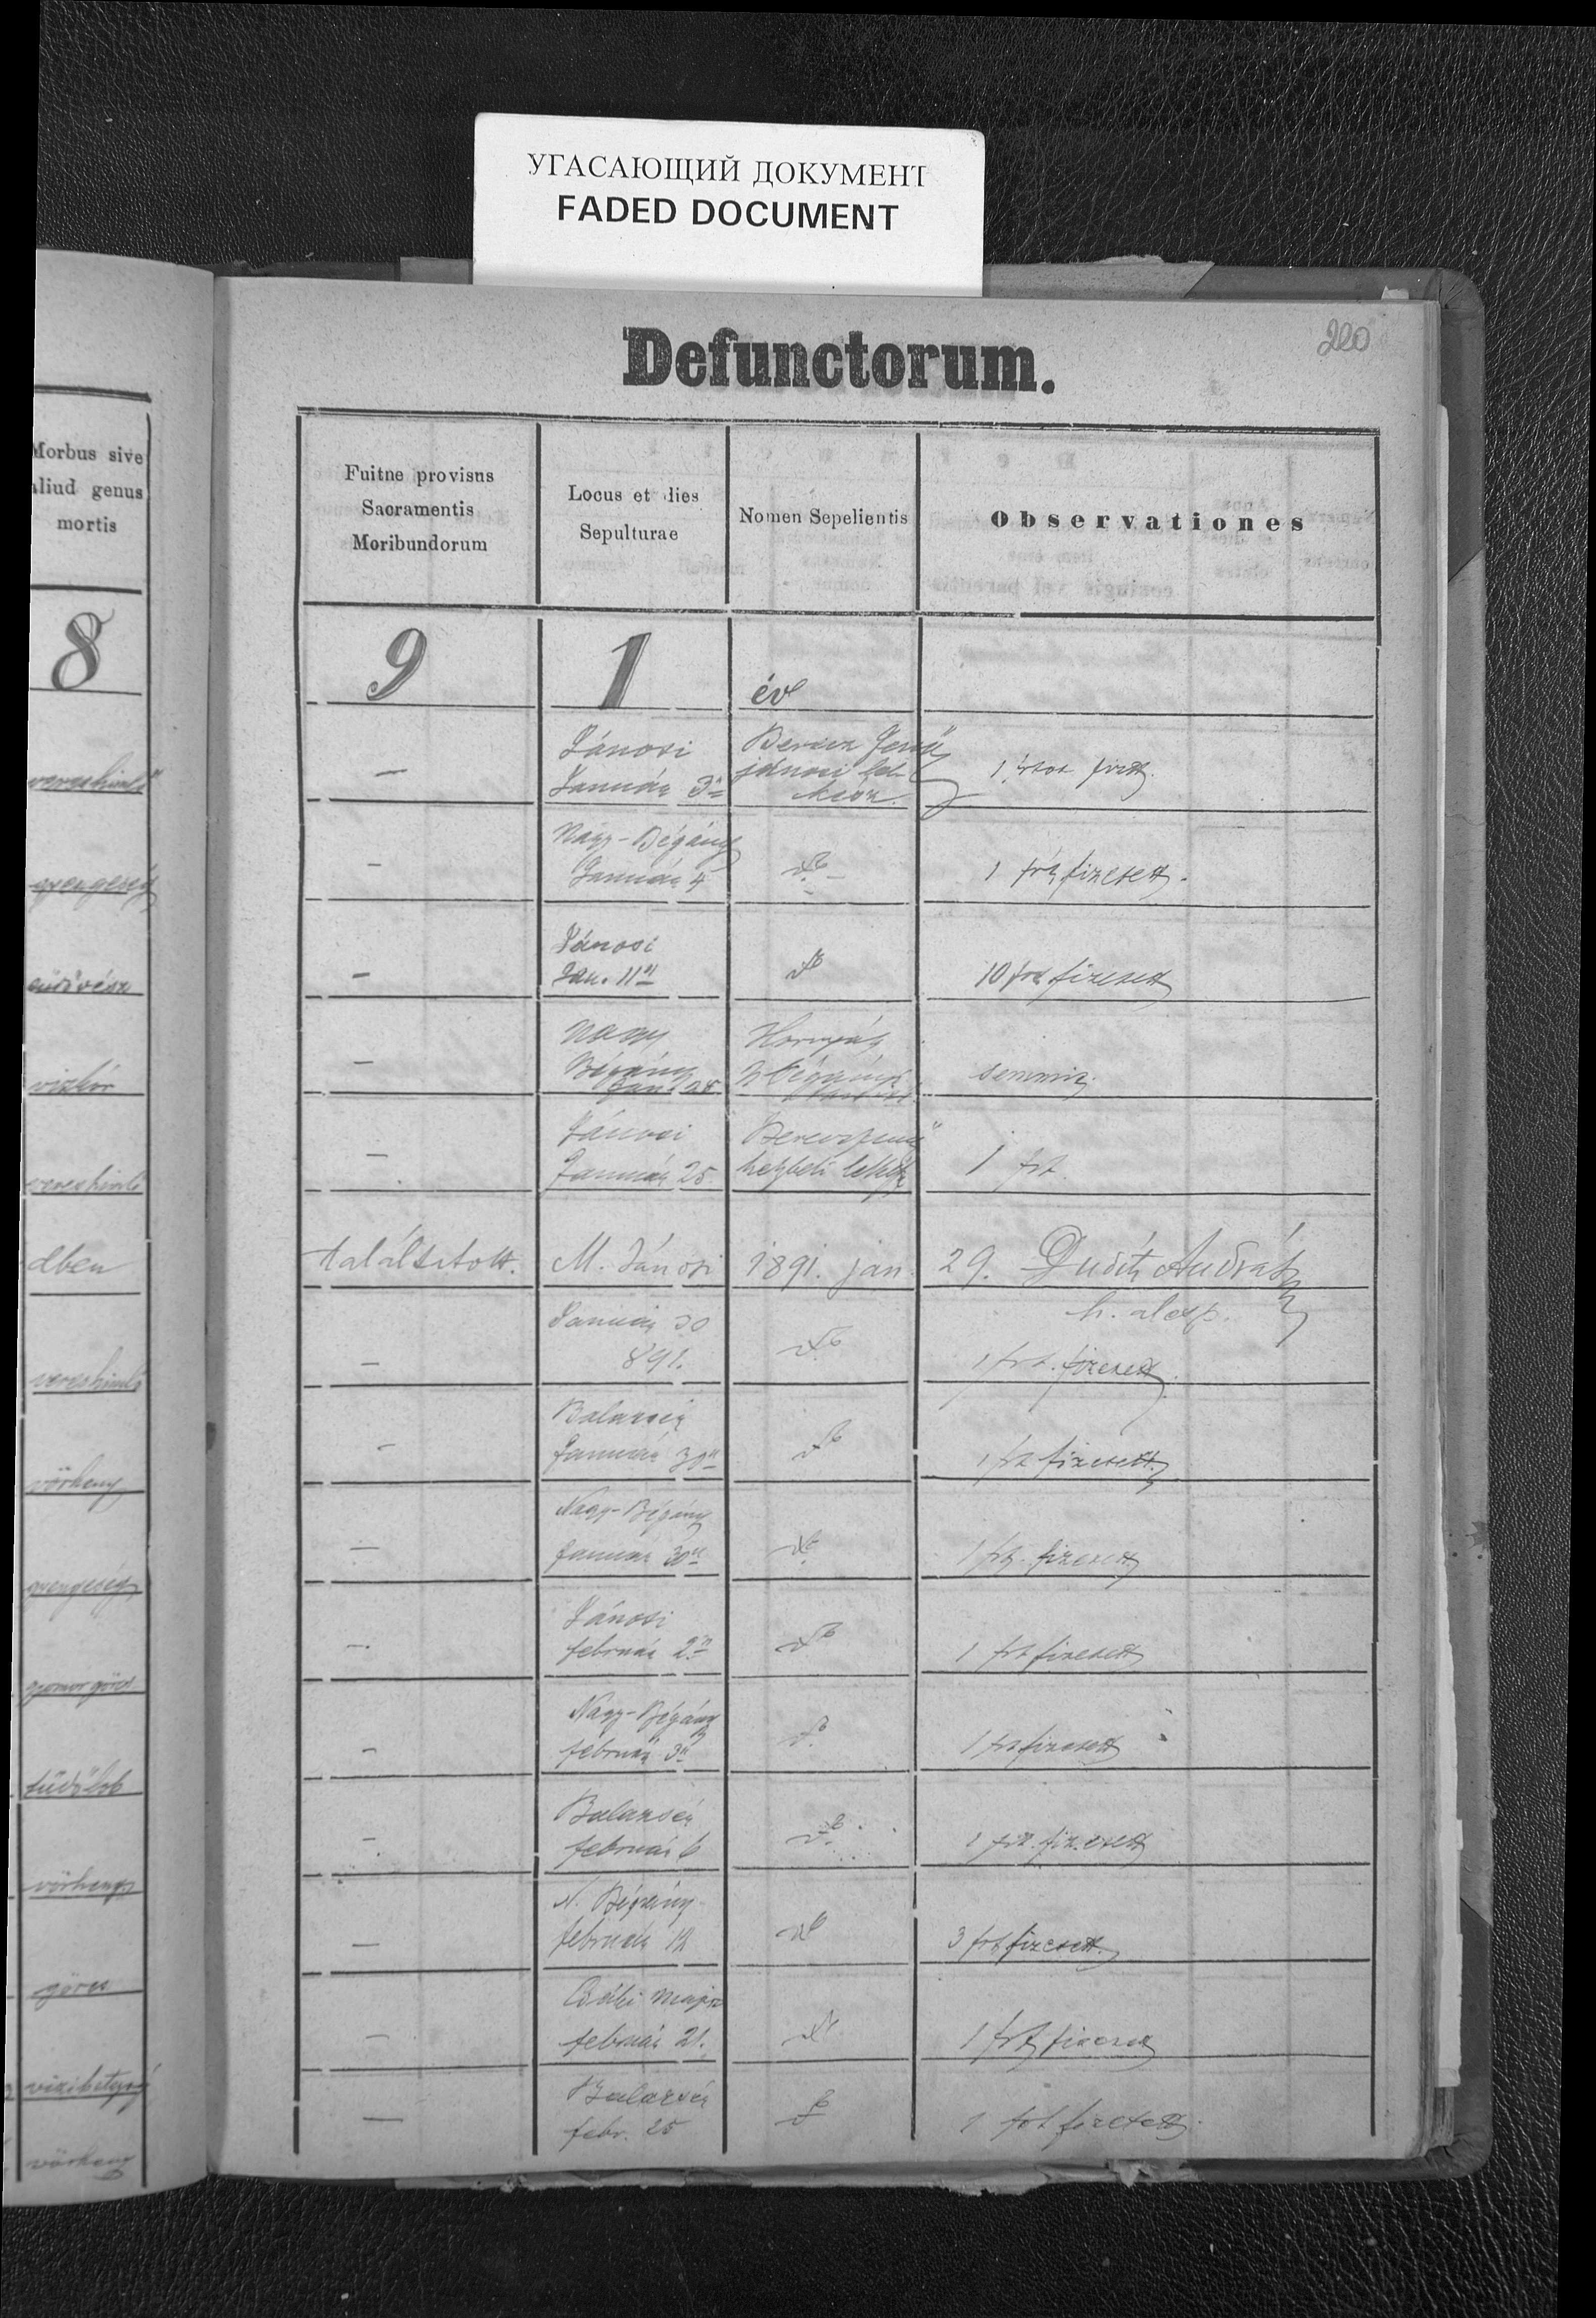 УГАСАЮЩИЙ ДОКУМЕНТ
FADED DOCUMENT
220
Defunctorum.
Morbus sive
aliud genus
mortis
Fuitne provisus
Sacramentis
Moribundorum
Locus et dies
Sepulturae
Nomen Sepelientis
Observationes
8
9
1
év
vereshimlő
Jánosi
Január 3án
Berecz Jenő
jánosi lel-
kész.
gyengeség
Nagy-Bégány
Január 4
db
1 frt fizetett.
tüdővész
Jánosi
Jan. 11n
db
10 frt fizetett
vizkór
Nagy
Bégány
Jan. 28
semmit.
vereshimlő
Jánosi
Január 25
Berecz Jenő
helybeli lelkész
1 frt.
eben
találtatott.
M. Jánosi
1891. jan.
29.
Dudits András
h. alesp.
vereshimlő
Január 30
891.
db
1 frt. fizetett
vörheny
Balazsér
Január 30n
db
1 frt fizetett.
gyengeség
Nagy-Bégány
Január 30n
db
1 frt. fizetett
gyomor görcs
Jánosi
február 2n
db
1 frt fizetett
tüdőlob
Nagy-Bégány
február 3n
db
1 frt fizetett
vörheny
Balazsér
február 6
db
1 frt. fizetett
görcs
N. Bégány
február 12
db
3 frt fizetett.
vizibetegség
február 21.
db
1 frt fizetett
vörheny
Balazsér
febr. 25
db
1 frt fizetett.